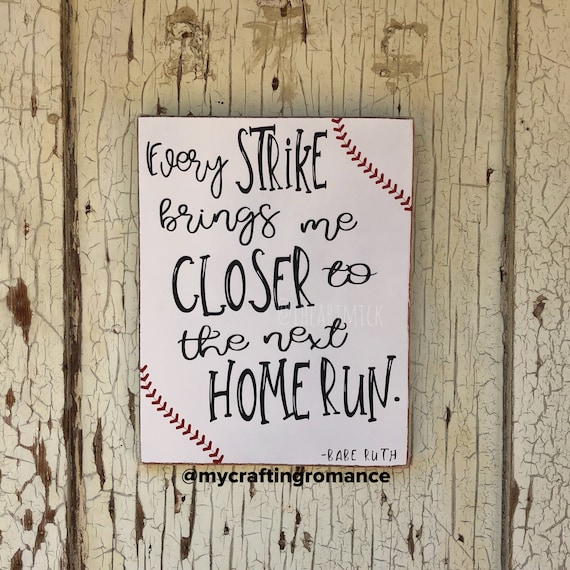 Every STRIKE
brings me
CLOSER to
the next
HOME RUN.
-BABE RUTH
@mycraftingromance